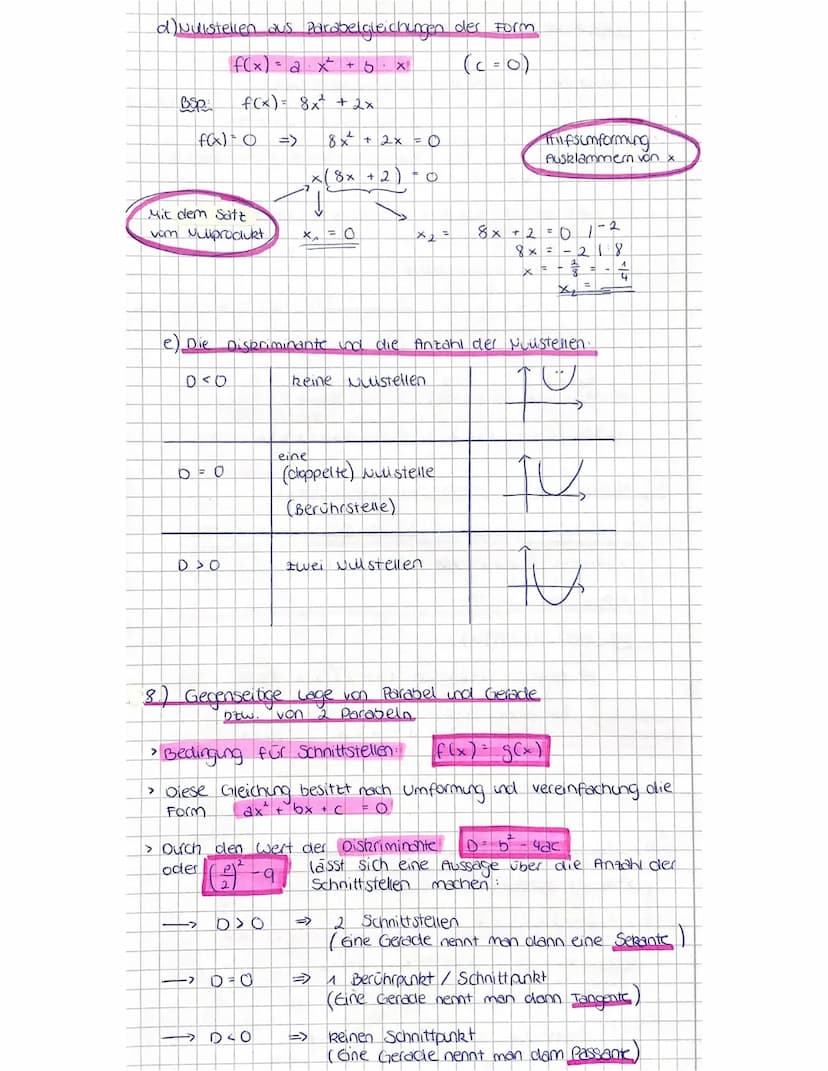 d) Nullstellen aus Parabelgleichungen der Form
f(x) = a · x² + b · x (c = 0)
Bsp: f(x) = 8x² + 2x
f(x) = 0 => 8x² + 2x = 0
Hilfsumformung
Ausklammern von x
x(8x + 2) = 0
Mit dem Satz
vom Nullprodukt
x₁ = 0 x₂ = 8x + 2 = 0 |-2
8x = -2 |:8
x = -2/8 = -1/4
x₂ =
e) Die Diskriminante und die Anzahl der Nullstellen.
D < 0 keine Nullstellen
eine
D = 0 (doppelte) Nullstelle
(Berührstelle)
D > 0 zwei Nullstellen
8.) Gegenseitige Lage von Parabel und Gerade
bzw. von 2 Parabeln
> Bedingung für Schnittstellen: f(x) = g(x)
> Diese Gleichung besitzt nach Umformung und Vereinfachung die
Form ax² + bx + c = 0
> Durch den Wert der Diskriminante D = b² - 4ac
oder (p/2)² - q lässt sich eine Aussage über die Anzahl der
Schnittstellen machen:
—> D > 0 => 2 Schnittstellen
(Eine Gerade nennt man dann eine Sekante)
—> D = 0 => 1 Berührpunkt / Schnittpunkt
(Eine Gerade nennt man dann Tangente)
—> D < 0 => keinen Schnittpunkt
(Eine Gerade nennt man dann Passante)